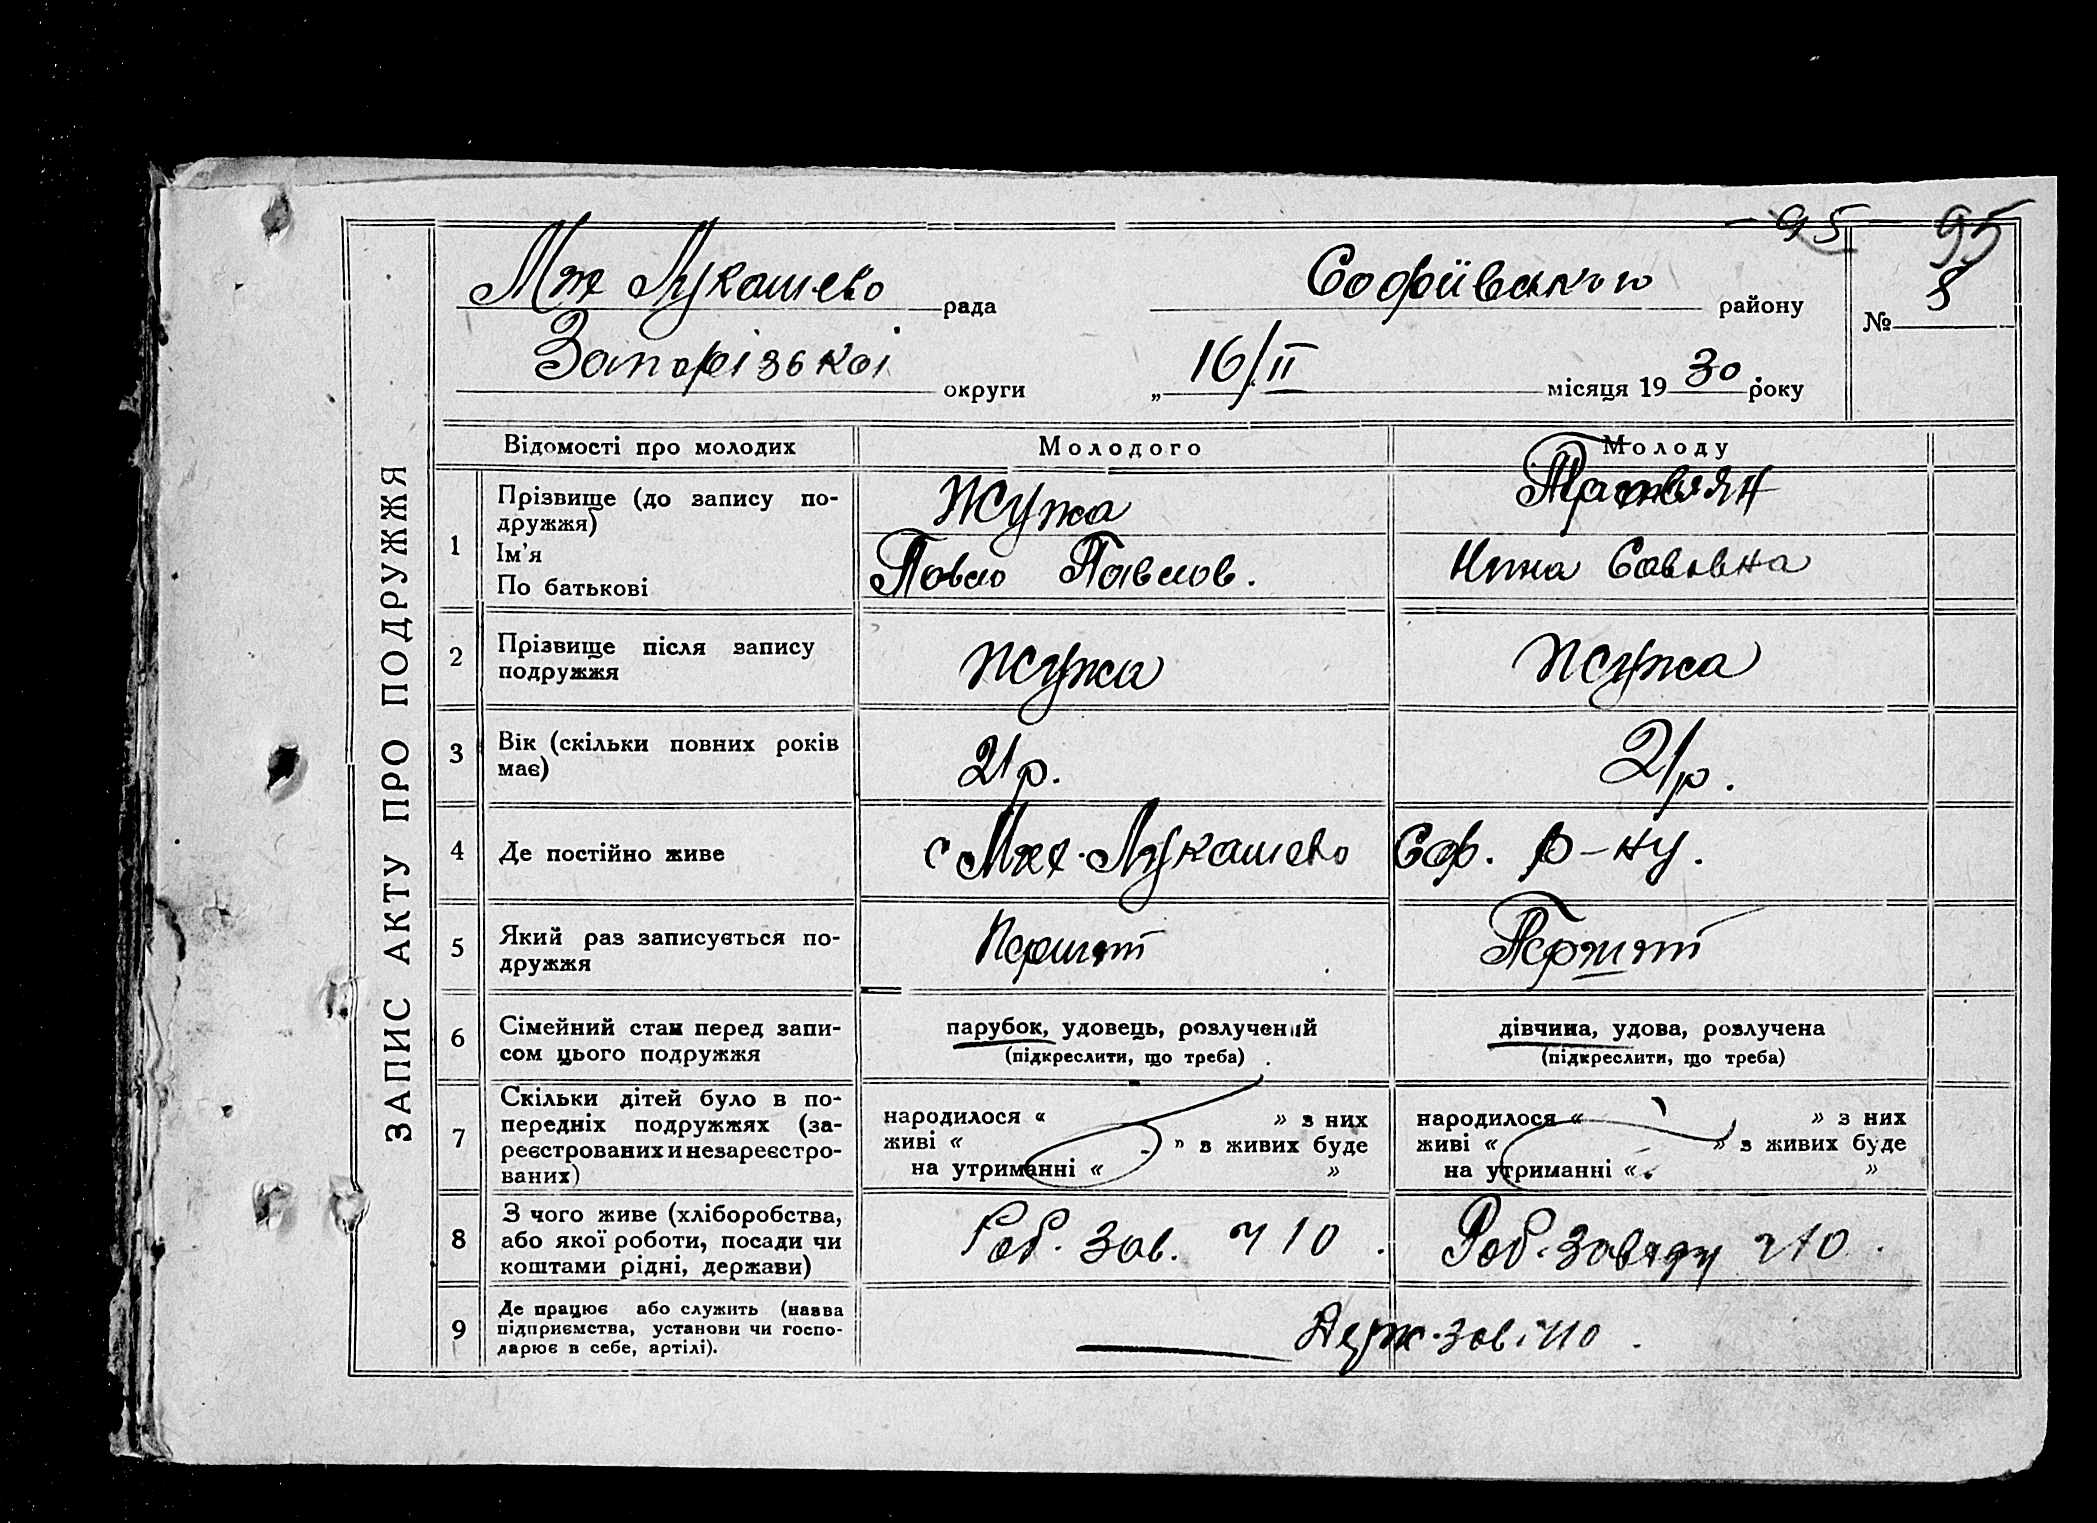 95 95
Мже Лукашево рада Софиівського району № 8
Запорізькоі округи „16/II місяця 1930 року
ЗАПИС АКТУ ПРО ПОДРУЖЖЯ
Відомості про молодих Молодого Молоду
1 Прізвище (до запису по-
дружжя) Жужа
Ім'я
По батькові Павло Павлов. Нина Савовна
2 Прізвище після запису
подружжя Жужа Жужа
3 Вік (скільки повних років
має) 21 р. 21 р.
4 Де постійно живе с Мже. Лукашево Соф. р-ну.
5 Який раз записується по-
дружжя
6 Сімейний стан перед запи-
сом цього подружжя
парубок, удовець, розлучений
(підкреслити, що треба)
дівчина, удова, розлучена
(підкреслити, що треба)
7 Скільки дітей було в по-
передніх подружжях (за-
реєстрованих и незареєстро-
ваних)
народилося « » з них
живі « » з живих буде
на утриманні « »
народилося « » з них
живі « » з живих буде
на утриманні « »
8 З чого живе (хліборобства,
або якої роботи, посади чи
коштами рідні, держави)
Роб. зав. ч 10. Роб. Заводу ч 10.
9 Де працює або служить (назва
підприємства, установи чи госпо-
дарює в себе, артілі).
Держ. зав